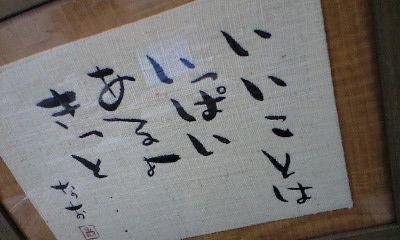 いいことは
いっぱい
あるよ
きっと